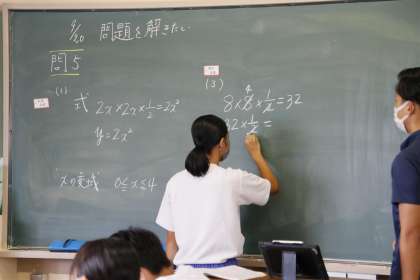 9/20 問題を解きたい
問5
(1)
式 2x×2x×1/2=2x²
y=2x²
xの変域 0≦x≦4
(3)
4
8×8×1/2=32
32×1/2=